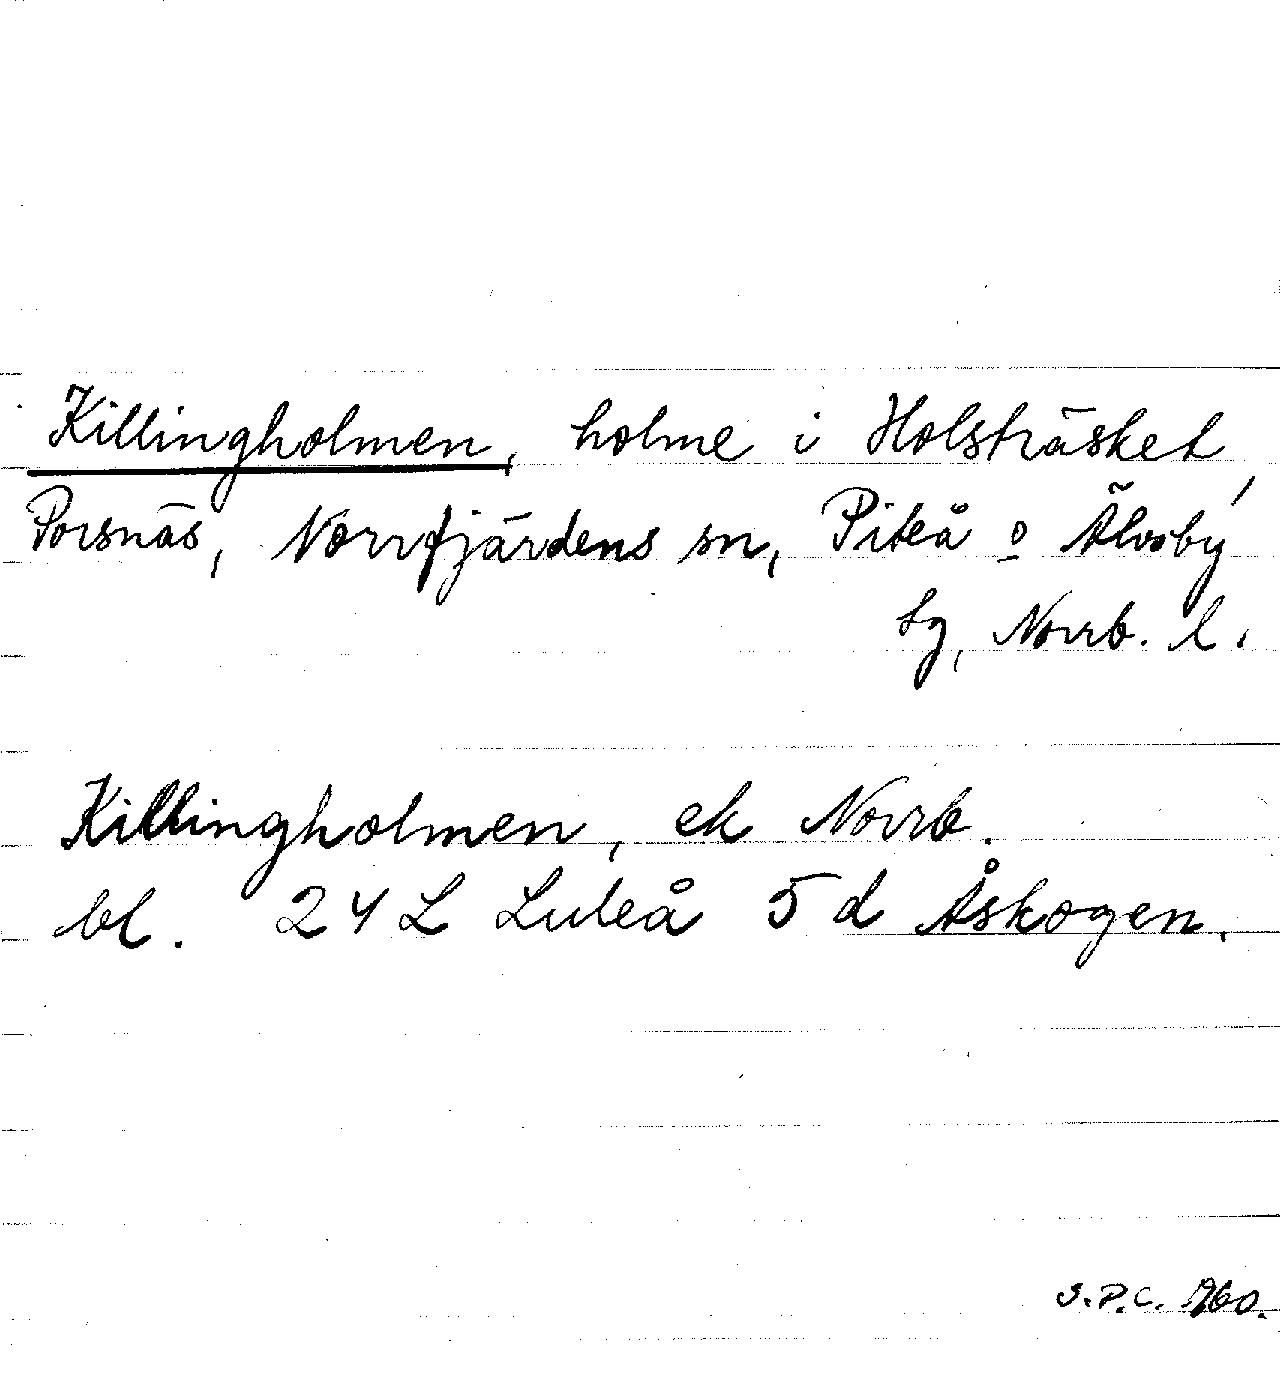 Killingholmen, holme i Holsträsket,
Porsnäs, Norrfjärdens sn, Piteå o Älvsby
tg, Norrb. l.
Killingholmen, ek Norrb.
bl. 24 L Luleå 5 d Åskogen.
S.P.C. 1960.